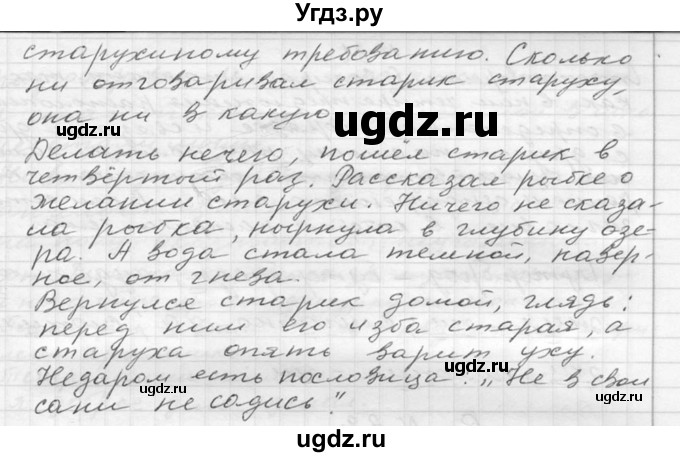 Угдз.ру
старухиному требованию. Сколько
ни отговаривал старик старуху,
она ни в какую.
ugdz.ru
ugdz.ru
ugdz.ru
Делать нечего, пошёл старик в
четвёртый раз. Рассказал рыбке о
желании старухи. Ничего не сказа-
ла рыбка, нырнула в глубину озе-
ра. А вода стала темной, навер-
ное, от гнева.
Вернулся старик домой, глядь:
перед ним его изба старая, а
старуха опять варит уху.
ugdz.ru
ugdz.ru
Недаром есть пословица: „Не в свои
сани не садись."
ugdz.ru